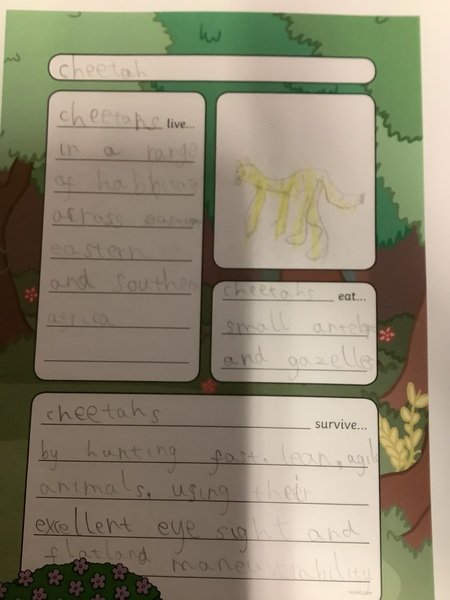 cheetah
cheetahs live...
in a range
of habbitats
across easter
eastern
and southern
africa.
cheetahs eat...
small antelope
and gazelles
cheetahs survive...
by hunting fast, lean, agile
animals. using their
exellent eye sight and
flatland maneuverability